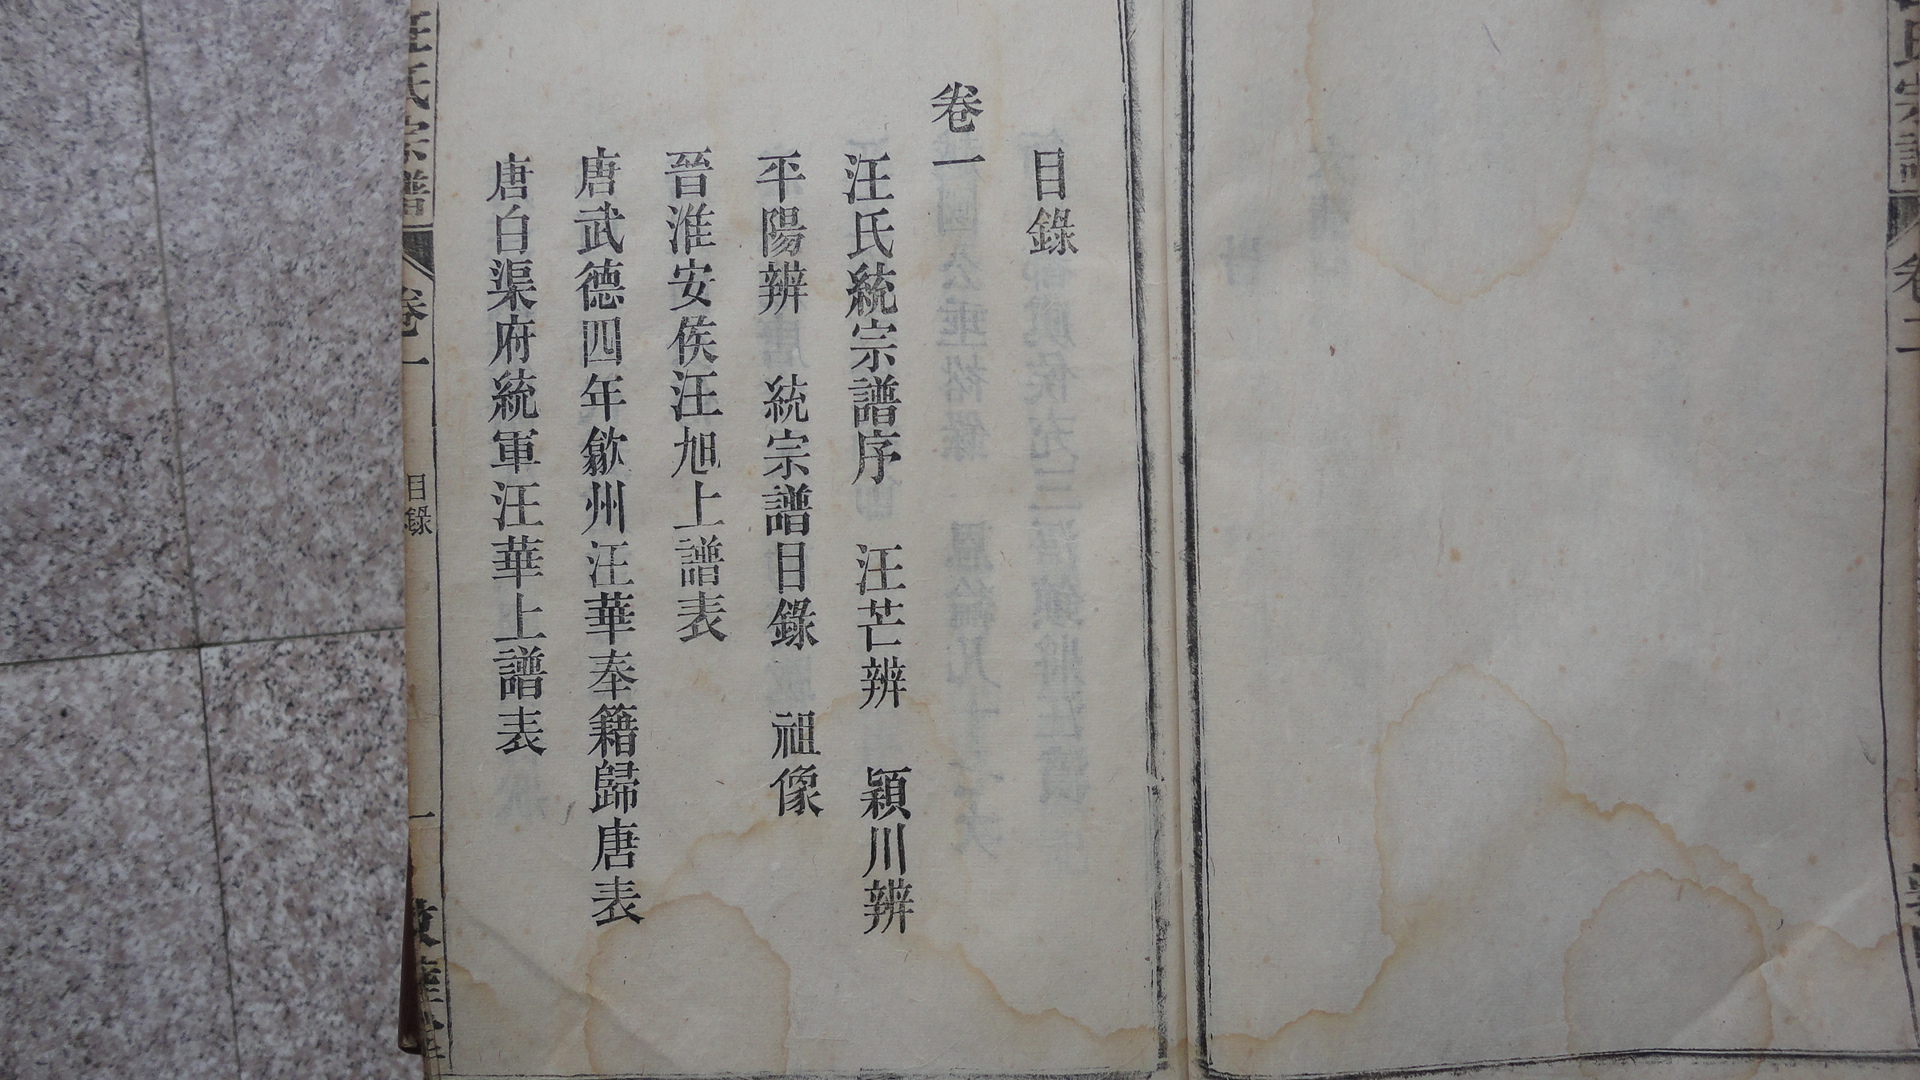 目錄
卷一
汪氏統宗譜序　汪芒辨　潁川辨
平陽辨　統宗譜目錄　祖像
晉淮安侯汪旭上譜表
唐武德四年歙州汪華奉籍歸唐表
唐白渠府統軍汪華上譜表
汪氏宗譜　卷一　目錄　一
氏宗譜　卷二